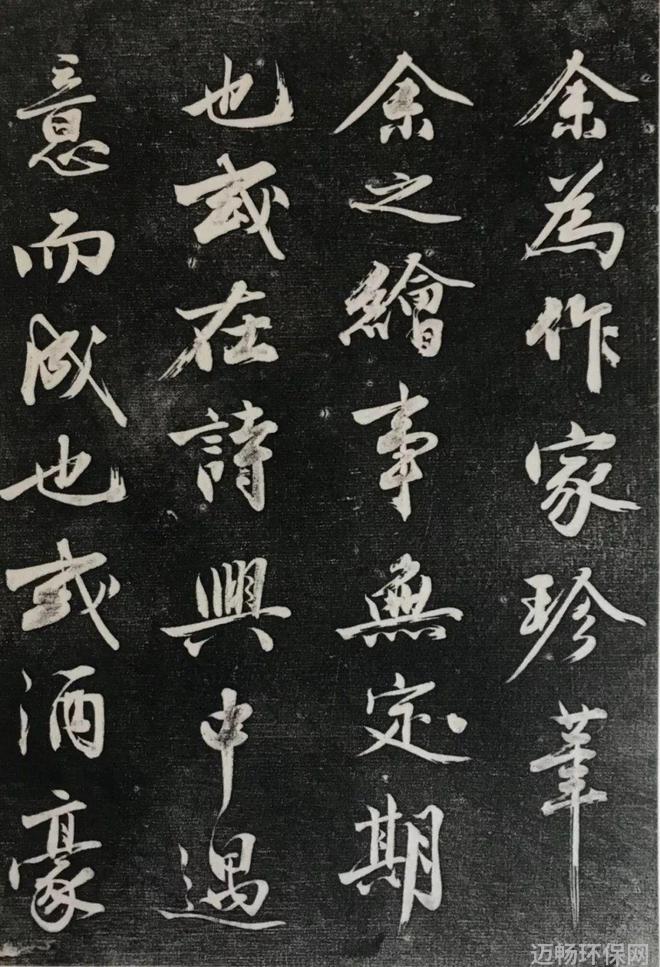 余為作家珍筆
余之繪事無定期
也或在詩興中遇
意而成也或酒豪
迈畅环保网